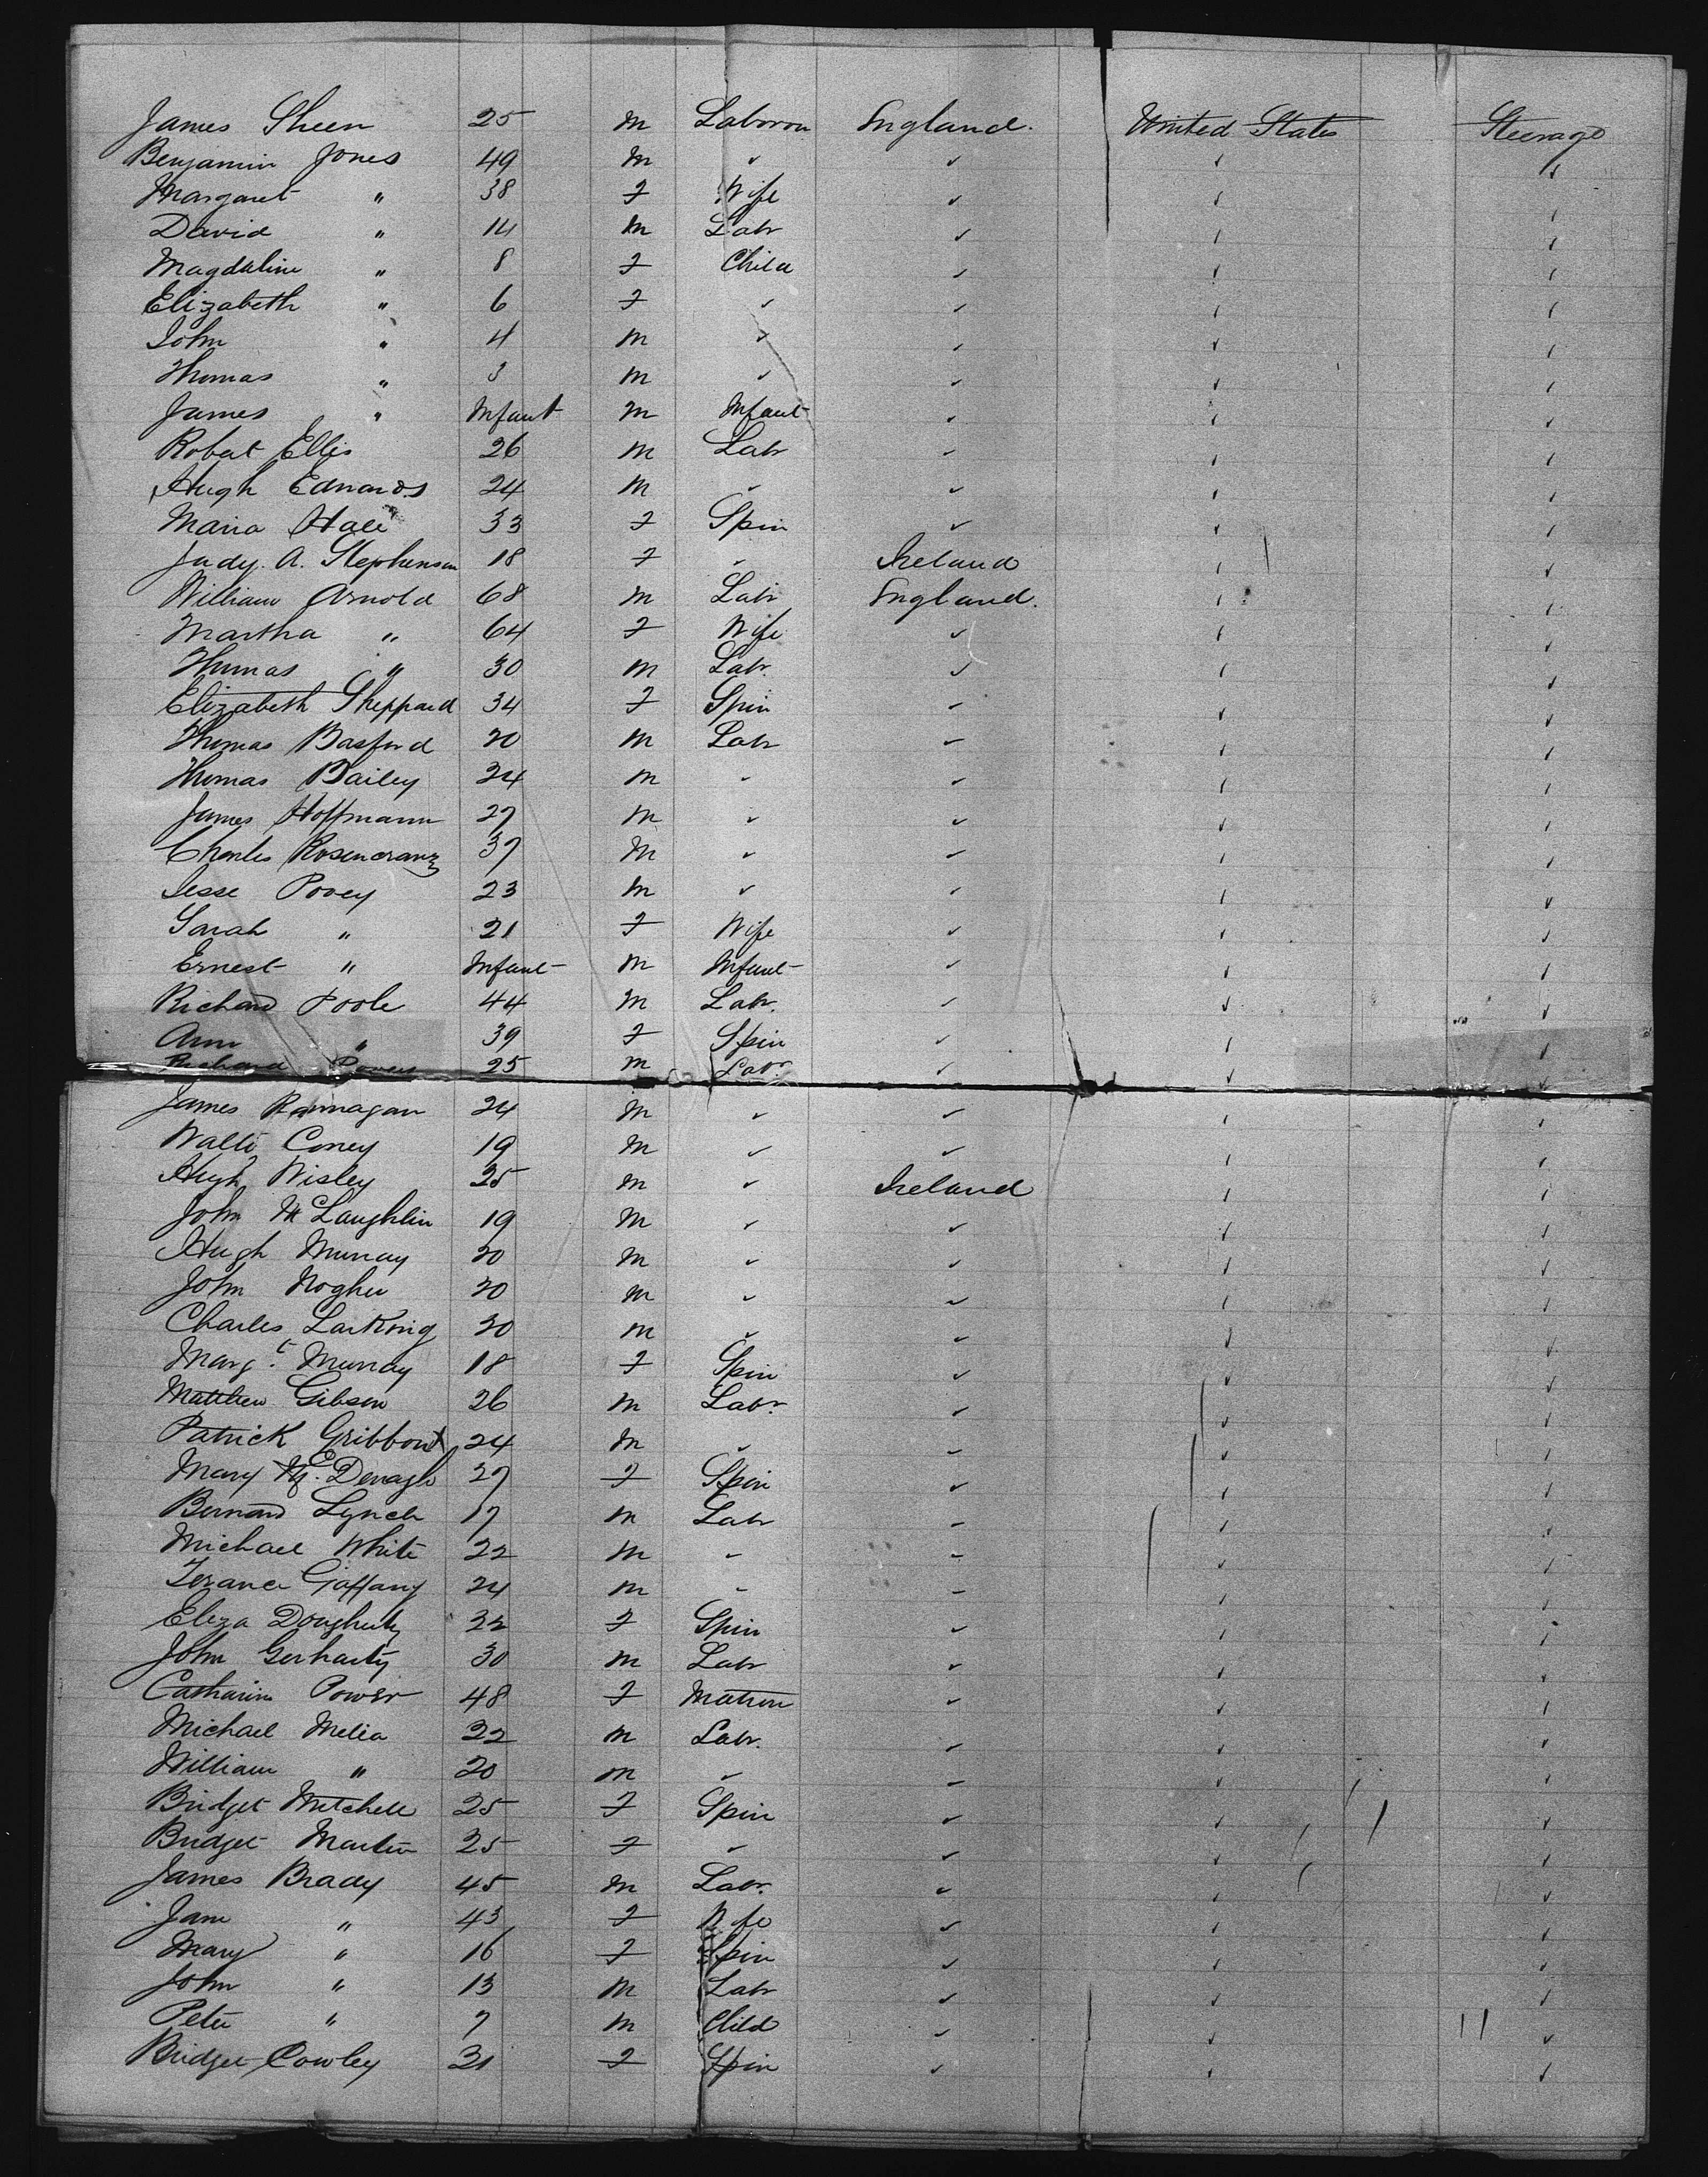 James Sheen 25 m Laborour England. United States Steerage
Benjamin Jones 49 m ✓ ✓ ✓ ✓
Margaret " 38 F Wife ✓ ✓ ✓
David " 14 m Labr ✓ ✓ ✓
Magdaline " 8 F Child ✓ ✓ ✓
Elizabeth " 6 F ✓ ✓ ✓ ✓
John " 4 m ✓ ✓ ✓ ✓
Thomas " 3 m ✓ ✓ ✓ ✓
James " Infant m Infant ✓ ✓ ✓
Robert Ellis 26 m Labr ✓ ✓ ✓
Hugh Edwards 24 m ✓ ✓ ✓ ✓
Maria Hale 33 F Spin ✓ ✓ ✓
Judy. A. Stephenson 18 F ✓ Ireland ✓ ✓
William Arnold 68 m Labr England. ✓ ✓
Martha " 64 F Wife ✓ ✓ ✓
Thomas " 30 m Labr. ✓ ✓ ✓
Elizabeth Sheppard 34 F Spin ✓ ✓ ✓
Thomas Basford 20 m Labr ✓ ✓ ✓
Thomas Bailey 24 m ✓ ✓ ✓ ✓
James Hoffmann 27 m ✓ ✓ ✓ ✓
Charles Rosencranz 37 m ✓ ✓ ✓ ✓
Jesse Povey 23 m ✓ ✓ ✓ ✓
Sarah " 21 F Wife ✓ ✓ ✓
Ernest " Infant m Infant ✓ ✓ ✓
Richard Poole 44 m Labr. ✓ ✓ ✓
Ann " 39 F Spin ✓ ✓ ✓
Richard 25 m Labr. ✓ ✓ ✓
James Rannagan 24 m ✓ ✓ ✓ ✓
Walter Coney 19 m ✓ ✓ ✓ ✓
Hugh Wisley 25 m ✓ Ireland ✓ ✓
John McLaughlin 19 m ✓ ✓ ✓ ✓
Hugh Murray 20 m ✓ ✓ ✓ ✓
John Nogher 20 m ✓ ✓ ✓ ✓
Charles Larking 20 m ✓ ✓ ✓ ✓
Margt. Murray 18 F Spin ✓ ✓ ✓
Matthew Gibson 26 m Labr. ✓ ✓ ✓
Patrick Gribbon 24 m ✓ ✓ ✓ ✓
Mary Mc. Denagh 27 F Spin ✓ ✓ ✓
Bernard Lynch 17 m Labr ✓ ✓ ✓
Michael White 22 m ✓ ✓ ✓ ✓
Terance Gaffany 24 m ✓ ✓ ✓ ✓
Eliza Dougherty 22 F Spin ✓ ✓ ✓
John Gerharty 30 m Labr ✓ ✓ ✓
Catharine Power 48 F Matron ✓ ✓ ✓
Michael Melia 22 m Labr. ✓ ✓ ✓
William " 20 m ✓ ✓ ✓ ✓
Bridget Mitchell 25 F Spin ✓ ✓ ✓
Bridget Martin 25 F ✓ ✓ ✓ ✓
James Brady 45 m Labr. ✓ ✓ ✓
Jane " 43 F Wife ✓ ✓ ✓
Mary " 16 F Spin ✓ ✓ ✓
John " 13 m Labr ✓ ✓ ✓
Peter " 7 m Child ✓ ✓ ✓
Bridget Cowley 31 F Spin ✓ ✓ ✓